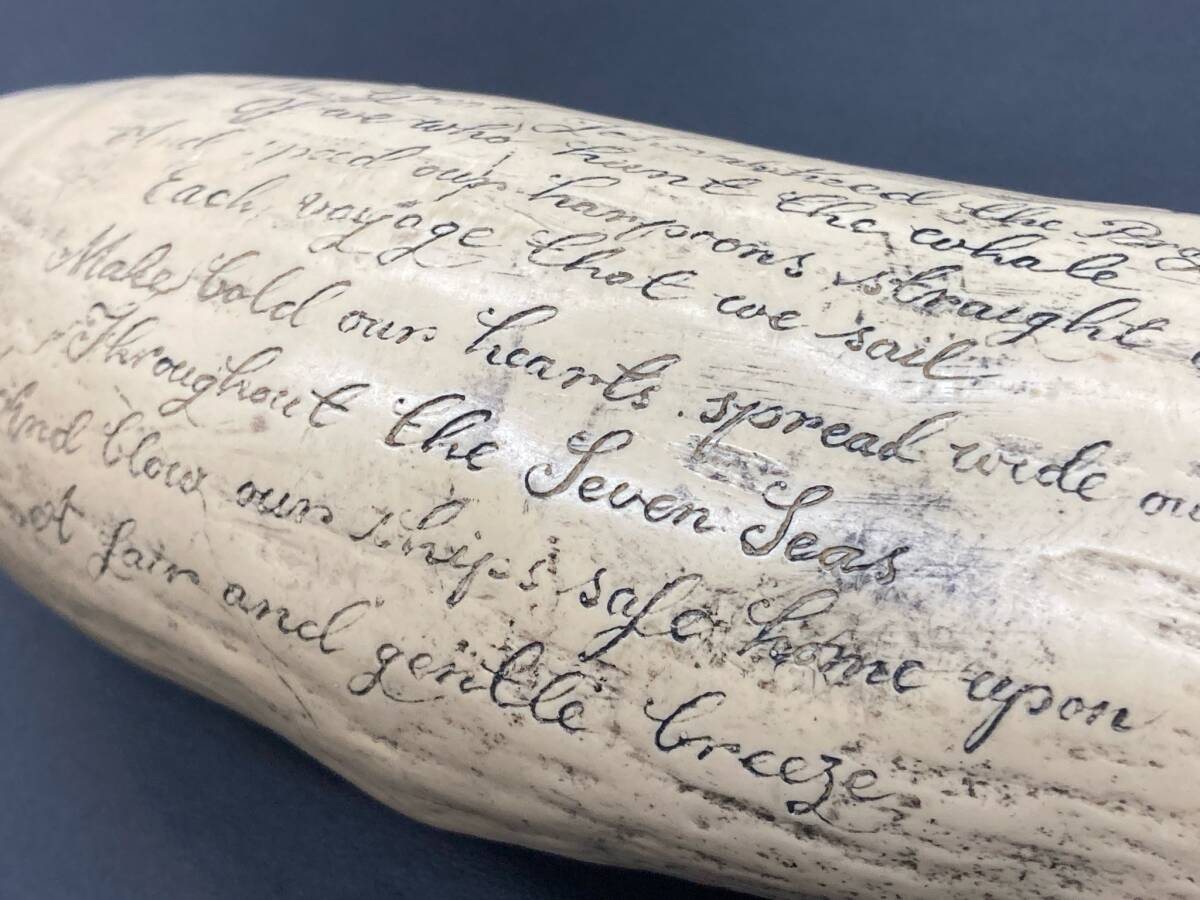 the
Of we who hunt the whale
And speed our harpoons straight
Each voyage that we sail
Make bold our hearts spread wide ou
Throughout the Seven Seas
And blow our ships safe home upon
A fair and gentle breeze